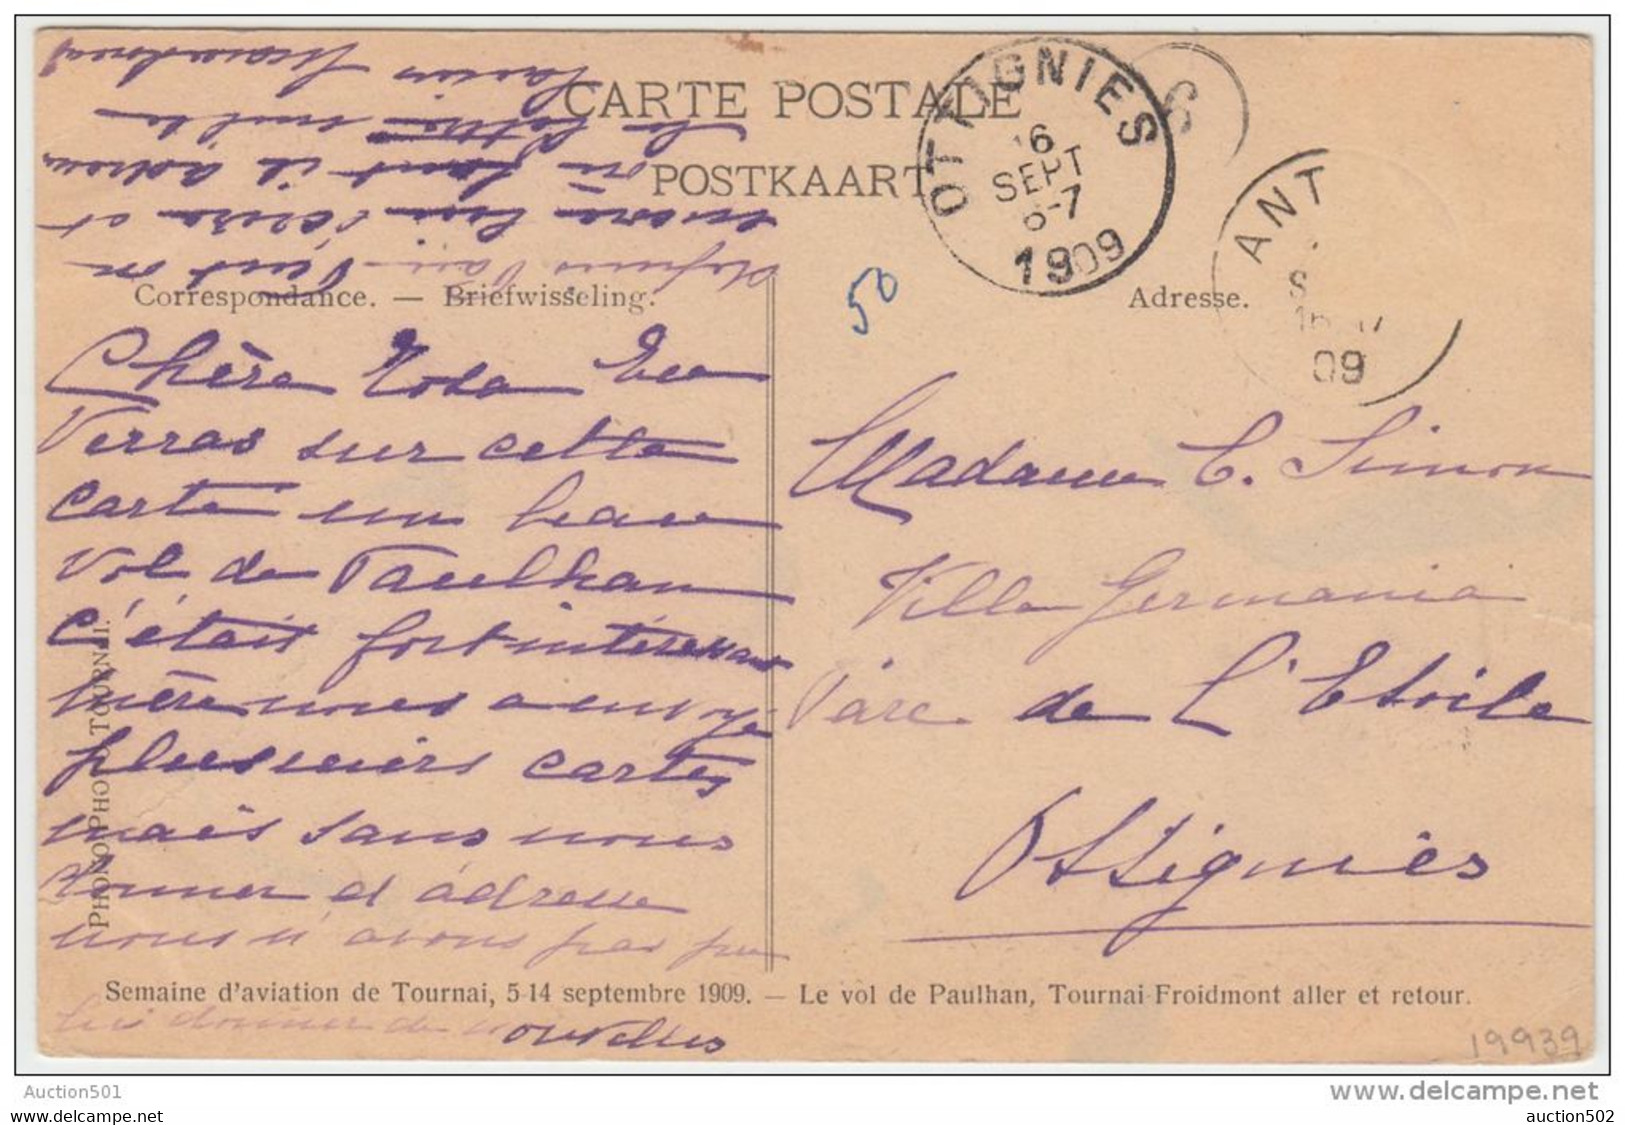 CARTE POSTALE
POSTKAART
OTTIGNIES
16
SEPT
6-7
1909
6
ANT
S
16-17
09
50
Correspondance. — Briefwisseling.
Adresse.
Chère Rosa
Verras sur cette
carte un beau
vol de Paulhan
c'était fort intéressant
mère nous a envoyé
plusieurs cartes
mais sans nous
donner d'adresse
nous n'avons pas pu
lui donner de nouvelles
on
encore lui écrire et
où faut il adresser
la lettre
Madame C. Simon
Villa Germania
Parc de L'Etoile
Ottignies
PHONO PHOTO TOURNAI.
Semaine d'aviation de Tournai, 5-14 septembre 1909. — Le vol de Paulhan, Tournai-Froidmont aller et retour.
19939
Auction501
www.delcampe.net
My auctions
auction502